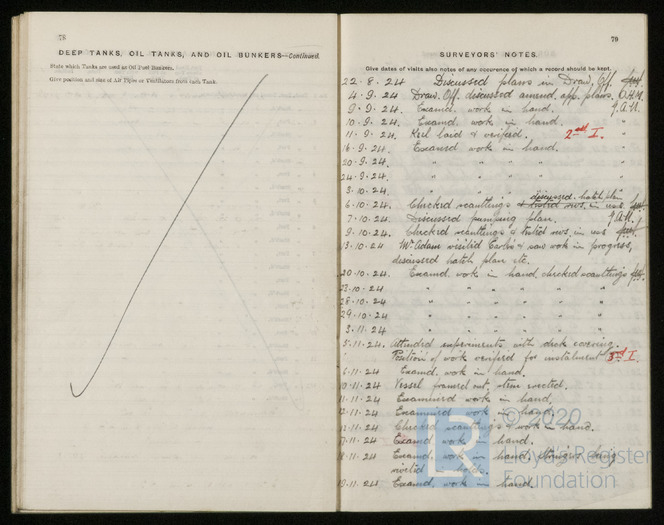 78
DEEP TANKS, OIL TANKS, AND OIL BUNKERS—Continued.
State which Tanks are used as Oil Fuel Bunkers.
Give position and size of Air Pipes or Ventilators from each Tank.
79
SURVEYORS' NOTES.
Give dates of visits also notes of any occurence of which a record should be kept.
22.8.24 Discussed plans in Draw. Off.
4.9.24 Draw. Off. discussed amend. app. plans.
9.9.24. Examd. work in hand.
10.9.24. Examd. work in hand. "
11.9.24. Keel laid & verified. 2nd I. "
16.9.24. Examd work in hand. "
20.9.24. " " " "
24.9.24. " " " "
3.10.24. " " " "
discussed hatch plan
6.10.24. Checked scantlings & tested rivs. in use
7.10.24. Discussed pumping plan.
9.10.24. Checked scantlings & tested rivs. in use
13.10.24 Mr Adam visited & saw work in progress,
discussed hatch plan etc.
20.10.24. Examd. work in hand, checked scantlings
23.10.24 " " " " "
28.10.24 " " " " "
29.10.24 " " " " "
3.11.24 " " " " "
5.11.24. Attended experiments with deck covering.
Position of work verified for instalment 3rd I.
6.11.24 Examd. work in hand.
10.11.24 Vessel framed out, stem erected.
11.11.24 Examined work in hand,
12.11.24 Examined work in hand.
Checked scantlings & work in hand.
17.11.24 Examd work in hand.
18.11.24 Examd. work in hand, stringers being
riveted holds.
19.11.24 Examd. work in hand.
LR
© 2020
Lloyd's Register
Foundation